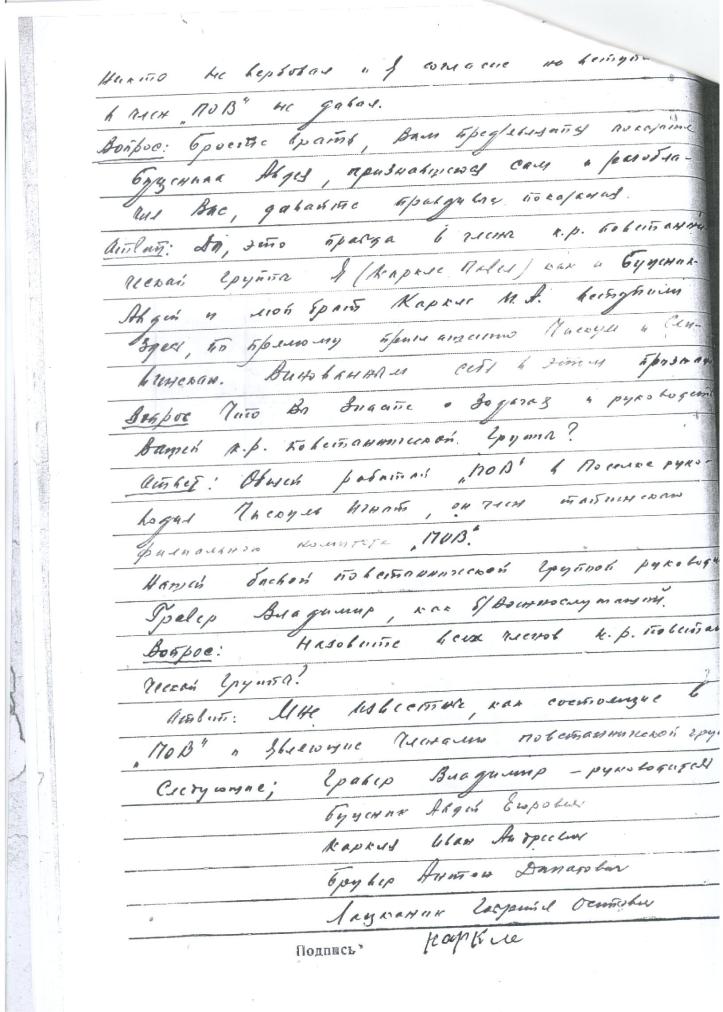 Никто не вербовал и я согласие на вступ
в член „ПОВ" не давал.
Вопрос: Бросте врать, Вам предъявляются показ
Буценика Авдея, признавшегося сам и разобла-
чил Вас, давайте правдивые показания.
Ответ: Да, это правда в члены к.р. повстан
ческой группы я (Каркле Павел) как и Буценик
Авдей и мой брат Каркле И.А. вступили
здесь, по прямому приглашению Чискуль и
Виновным себя в этом призн
Вопрос Что Вы знаете о задачах и руковод
Вашей к.р. повстаннической группы?
Ответ: Общей работой „ПОВ" в поселке руко-
водил Чискуль Игнат, он член
филиального комитета „ПОВ".
Нашей боевой повстаннической группой руковод
Гравер Владимир, как б/военнослужащий.
Вопрос: Назовите всех членов к.р. повстан
ческой группы?
Ответ: Мне известны, как состоящие в
„ПОВ" и являющие членами повстаннической гру
Следующие; Гравер Владимир – руководителя
Буценик Авдей Егорович
Каркля Иван Андреевич
Брувер Антон Донатович
Лацканик Осипович
Подпись Каркле